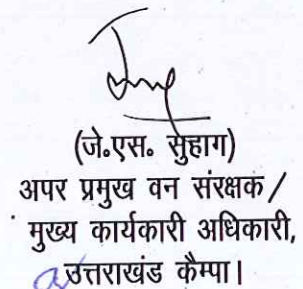 (जे०एस० सुहाग)
अपर प्रमुख वन संरक्षक/
मुख्य कार्यकारी अधिकारी,
उत्तराखंड कैम्पा।